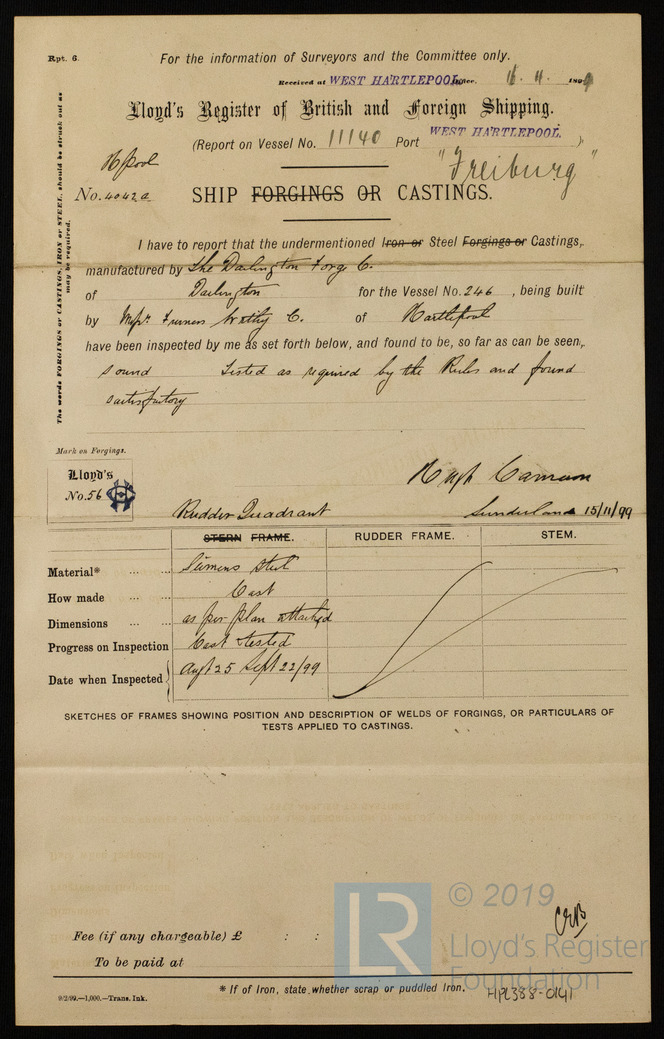 Rpt. 6.
For the information of Surveyors and the Committee only.
Received at WEST HARTLEPOOL Office. 16. 11. 1899
Lloyd's Register of British and Foreign Shipping.
(Report on Vessel No. 11140 Port WEST HARTLEPOOL.)
"Freiburg"
Hpool
No. 4042a
SHIP FORGINGS OR CASTINGS.
The words FORGINGS or CASTINGS, IRON or STEEL, should be struck out as
may be required.
I have to report that the undermentioned Iron or Steel Forgings or Castings,
manufactured by The Darlington Forge C.
of Darlington for the Vessel No. 246, being built
by Messrs. Furness Withy C. of Hartlepool
have been inspected by me as set forth below, and found to be, so far as can be seen,
sound Tested as required by the Rules and found
satisfactory
Mark on Forgings.
Lloyd's
No. 56
Hugh Cameron
Sunderland 15/11/99
Rudder Quadrant
STERN FRAME. RUDDER FRAME. STEM.
Material* ... ... Siemens steel
How made ... Cast
Dimensions ... ... as per plan attached
Progress on Inspection Cast tested
Date when Inspected Augt 25 Sept 22/99
SKETCHES OF FRAMES SHOWING POSITION AND DESCRIPTION OF WELDS OF FORGINGS, OR PARTICULARS OF
TESTS APPLIED TO CASTINGS.
Fee (if any chargeable) £ : :
To be paid at
* If of Iron, state whether scrap or puddled Iron.
9/2/99.—1,000.—Trans. Ink.
HPL388-0141
LR
© 2019
Lloyd's Register
Foundation